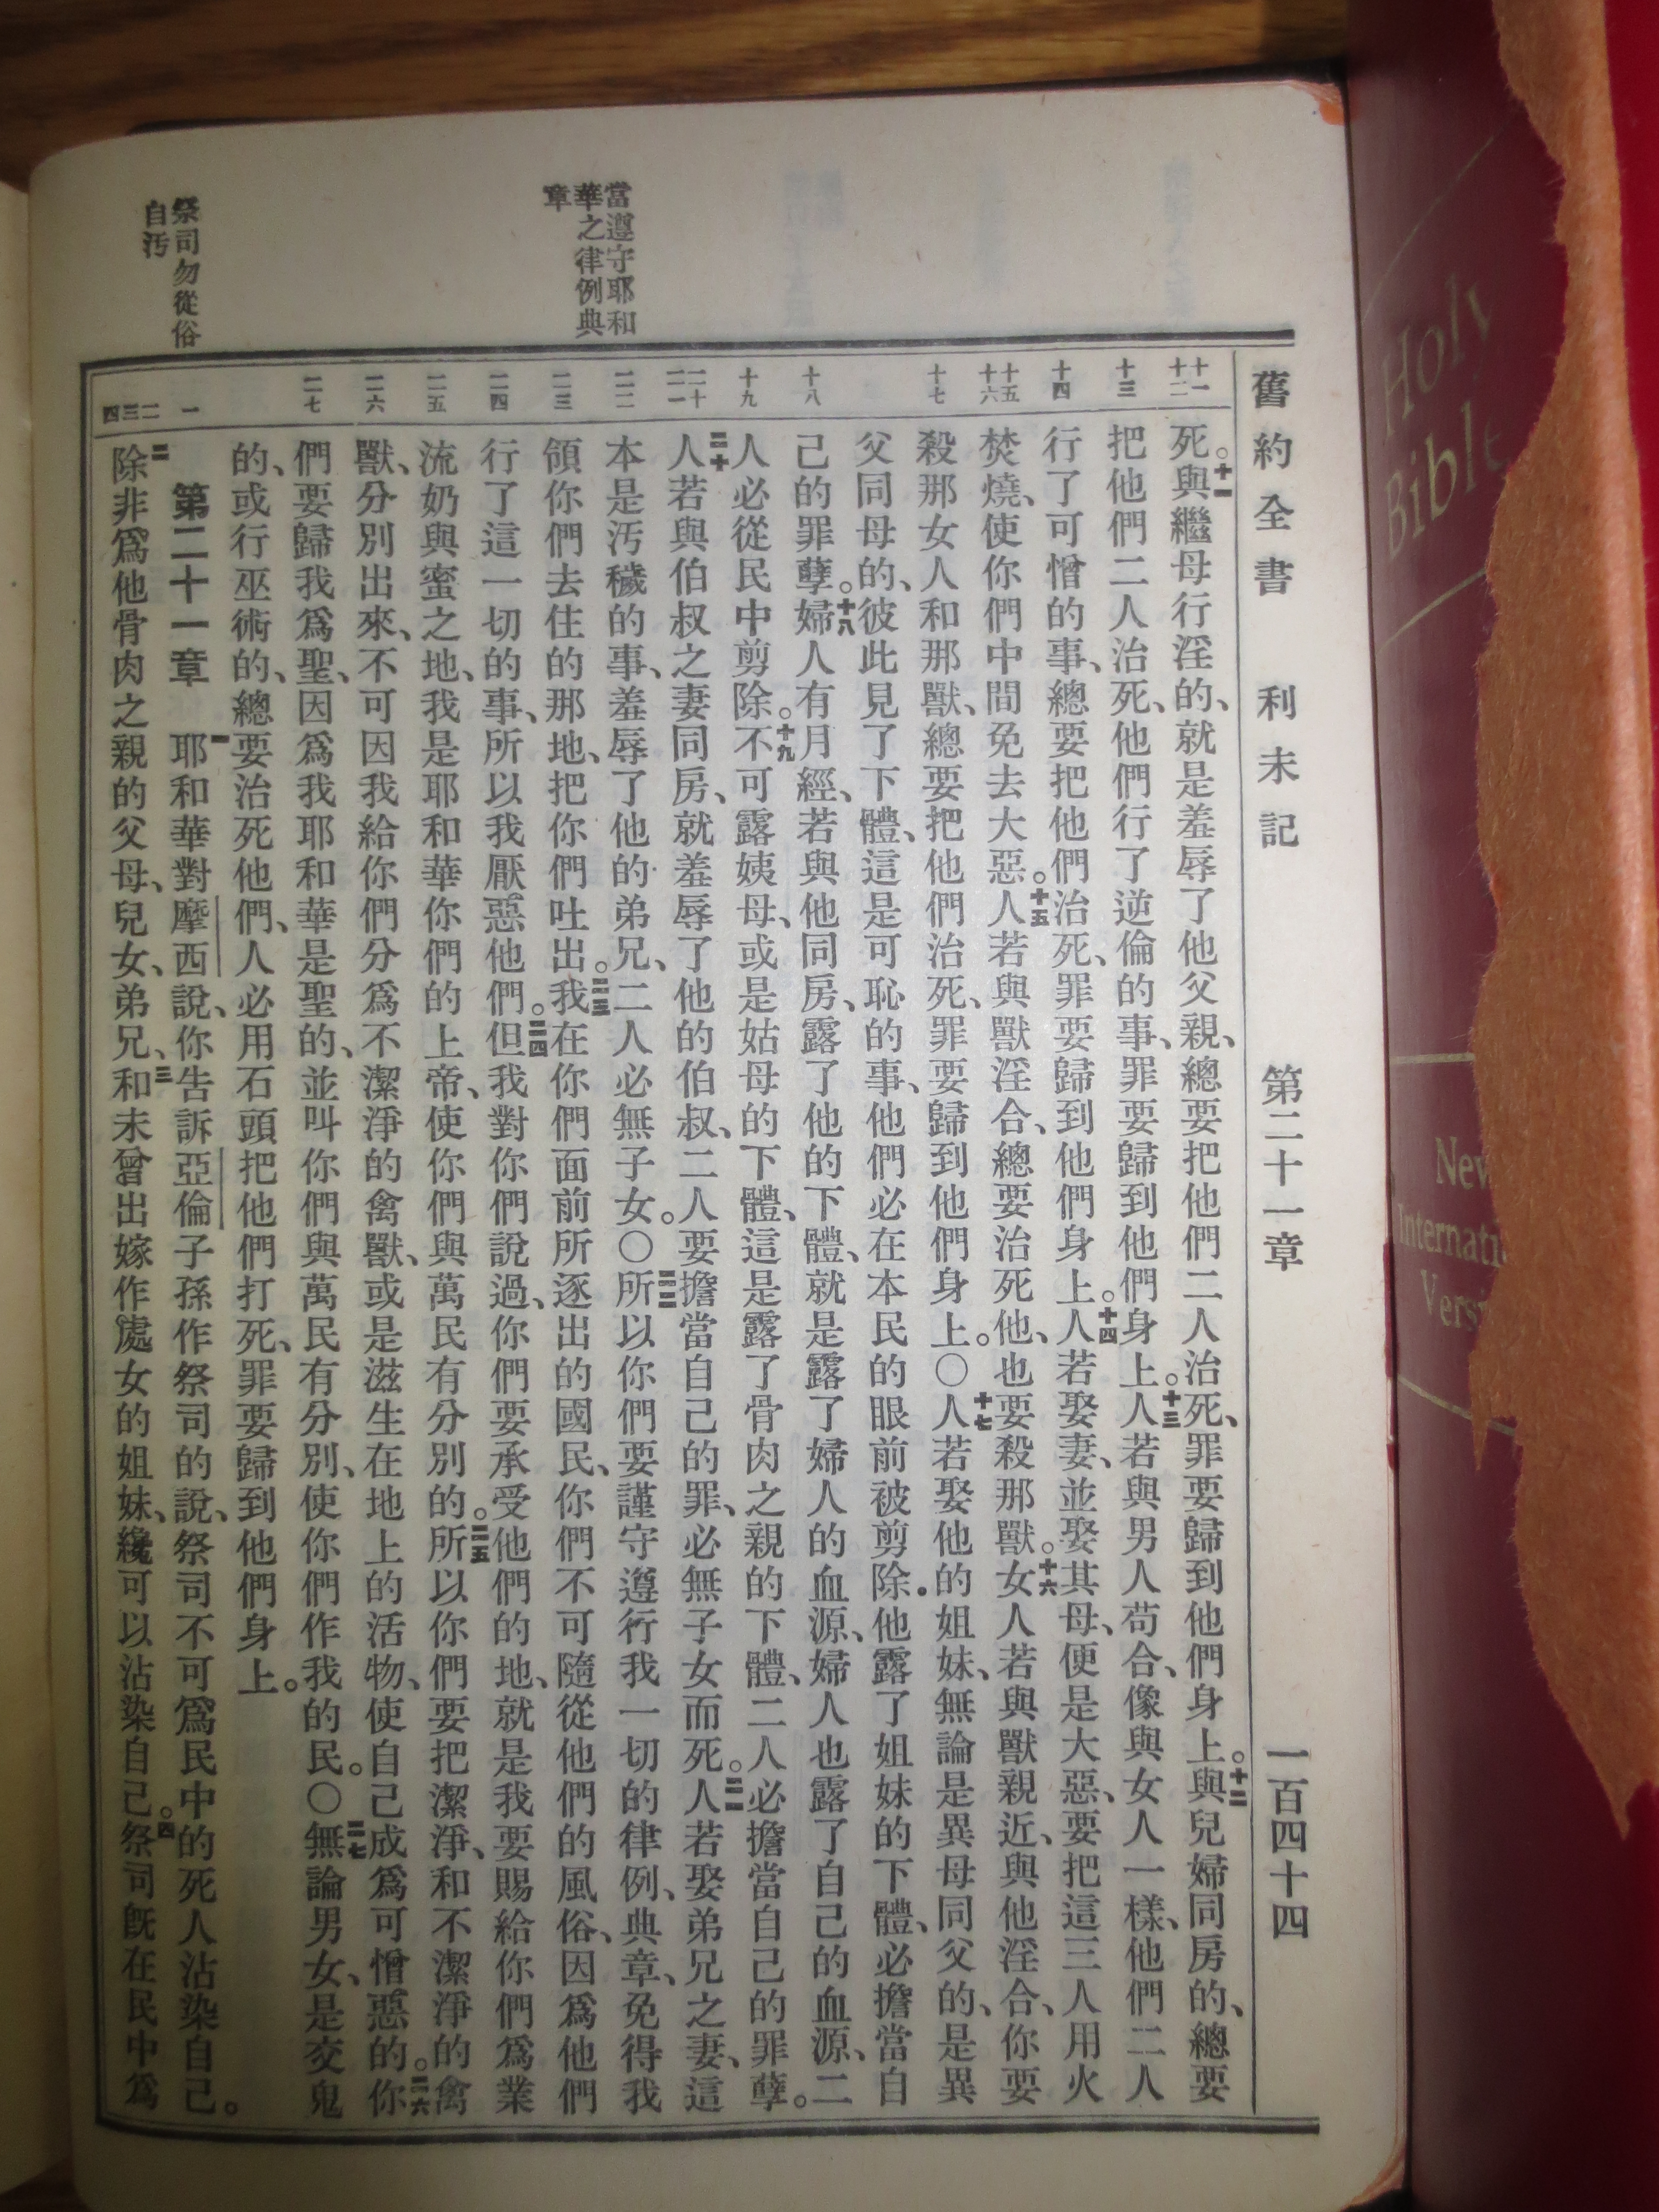 舊約全書 利未記 第二十一章 一百四十四
當遵守耶和
華之律例典
章
祭司勿從俗
自汚
十一
十二
十三
十四
十五
十六
十七
十八
十九
二十
二一
二二
二三
二四
二五
二六
二七
一
二
三
四
死。十一與繼母行淫的、就是羞辱了他父親、總要把他們二人治死、罪要歸到他們身上。十二與兒婦同房的、總要
把他們二人治死、他們行了逆倫的事、罪要歸到他們身上。十三人若與男人苟合、像與女人一樣、他們二人
行了可憎的事、總要把他們治死、罪要歸到他們身上。十四人若娶妻、並娶其母、便是大惡、要把這三人用火
焚燒、使你們中間免去大惡。十五人若與獸淫合、總要治死他、也要殺那獸。十六女人若與獸親近、與他淫合、你要
殺那女人和那獸、總要把他們治死、罪要歸到他們身上。〇十七人若娶他的姐妹、無論是異母同父的、是異
父同母的、彼此見了下體、這是可恥的事、他們必在本民的眼前被剪除．他露了姐妹的下體、必擔當自
己的罪孽。十八婦人有月經、若與他同房、露了他的下體、就是露了婦人的血源、婦人也露了自己的血源、二
人必從民中剪除。十九不可露姨母、或是姑母的下體、這是露了骨肉之親的下體、二人必擔當自己的罪孽。
二十人若與伯叔之妻同房、就羞辱了他的伯叔、二人要擔當自己的罪、必無子女而死。二一人若娶弟兄之妻、這
本是汚穢的事、羞辱了他的弟兄、二人必無子女。〇二二所以你們要謹守遵行我一切的律例、典章、免得我
領你們去住的那地、把你們吐出。二三我在你們面前所逐出的國民、你們不可隨從他們的風俗、因爲他們
行了這一切的事、所以我厭惡他們。二四但我對你們說過、你們要承受他們的地、就是我要賜給你們爲業
流奶與蜜之地、我是耶和華你們的上帝、使你們與萬民有分別的。二五所以你們要把潔淨、和不潔淨的禽
獸、分別出來、不可因我給你們分爲不潔淨的禽獸、或是滋生在地上的活物、使自己成爲可憎惡的。二六你
們要歸我爲聖、因爲我耶和華是聖的、並叫你們與萬民有分別、使你們作我的民。〇二七無論男女、是交鬼
的、或行巫術的、總要治死他們、人必用石頭把他們打死、罪要歸到他們身上。
第二十一章 一耶和華對摩西說、你告訴亞倫子孫作祭司的說、祭司不可爲民中的死人沾染自己。
二除非爲他骨肉之親的父母、兒女、弟兄、三和未曾出嫁作處女的姐妹、纔可以沾染自己。四祭司旣在民中爲
Holy
Bible
New
Internati
Vers